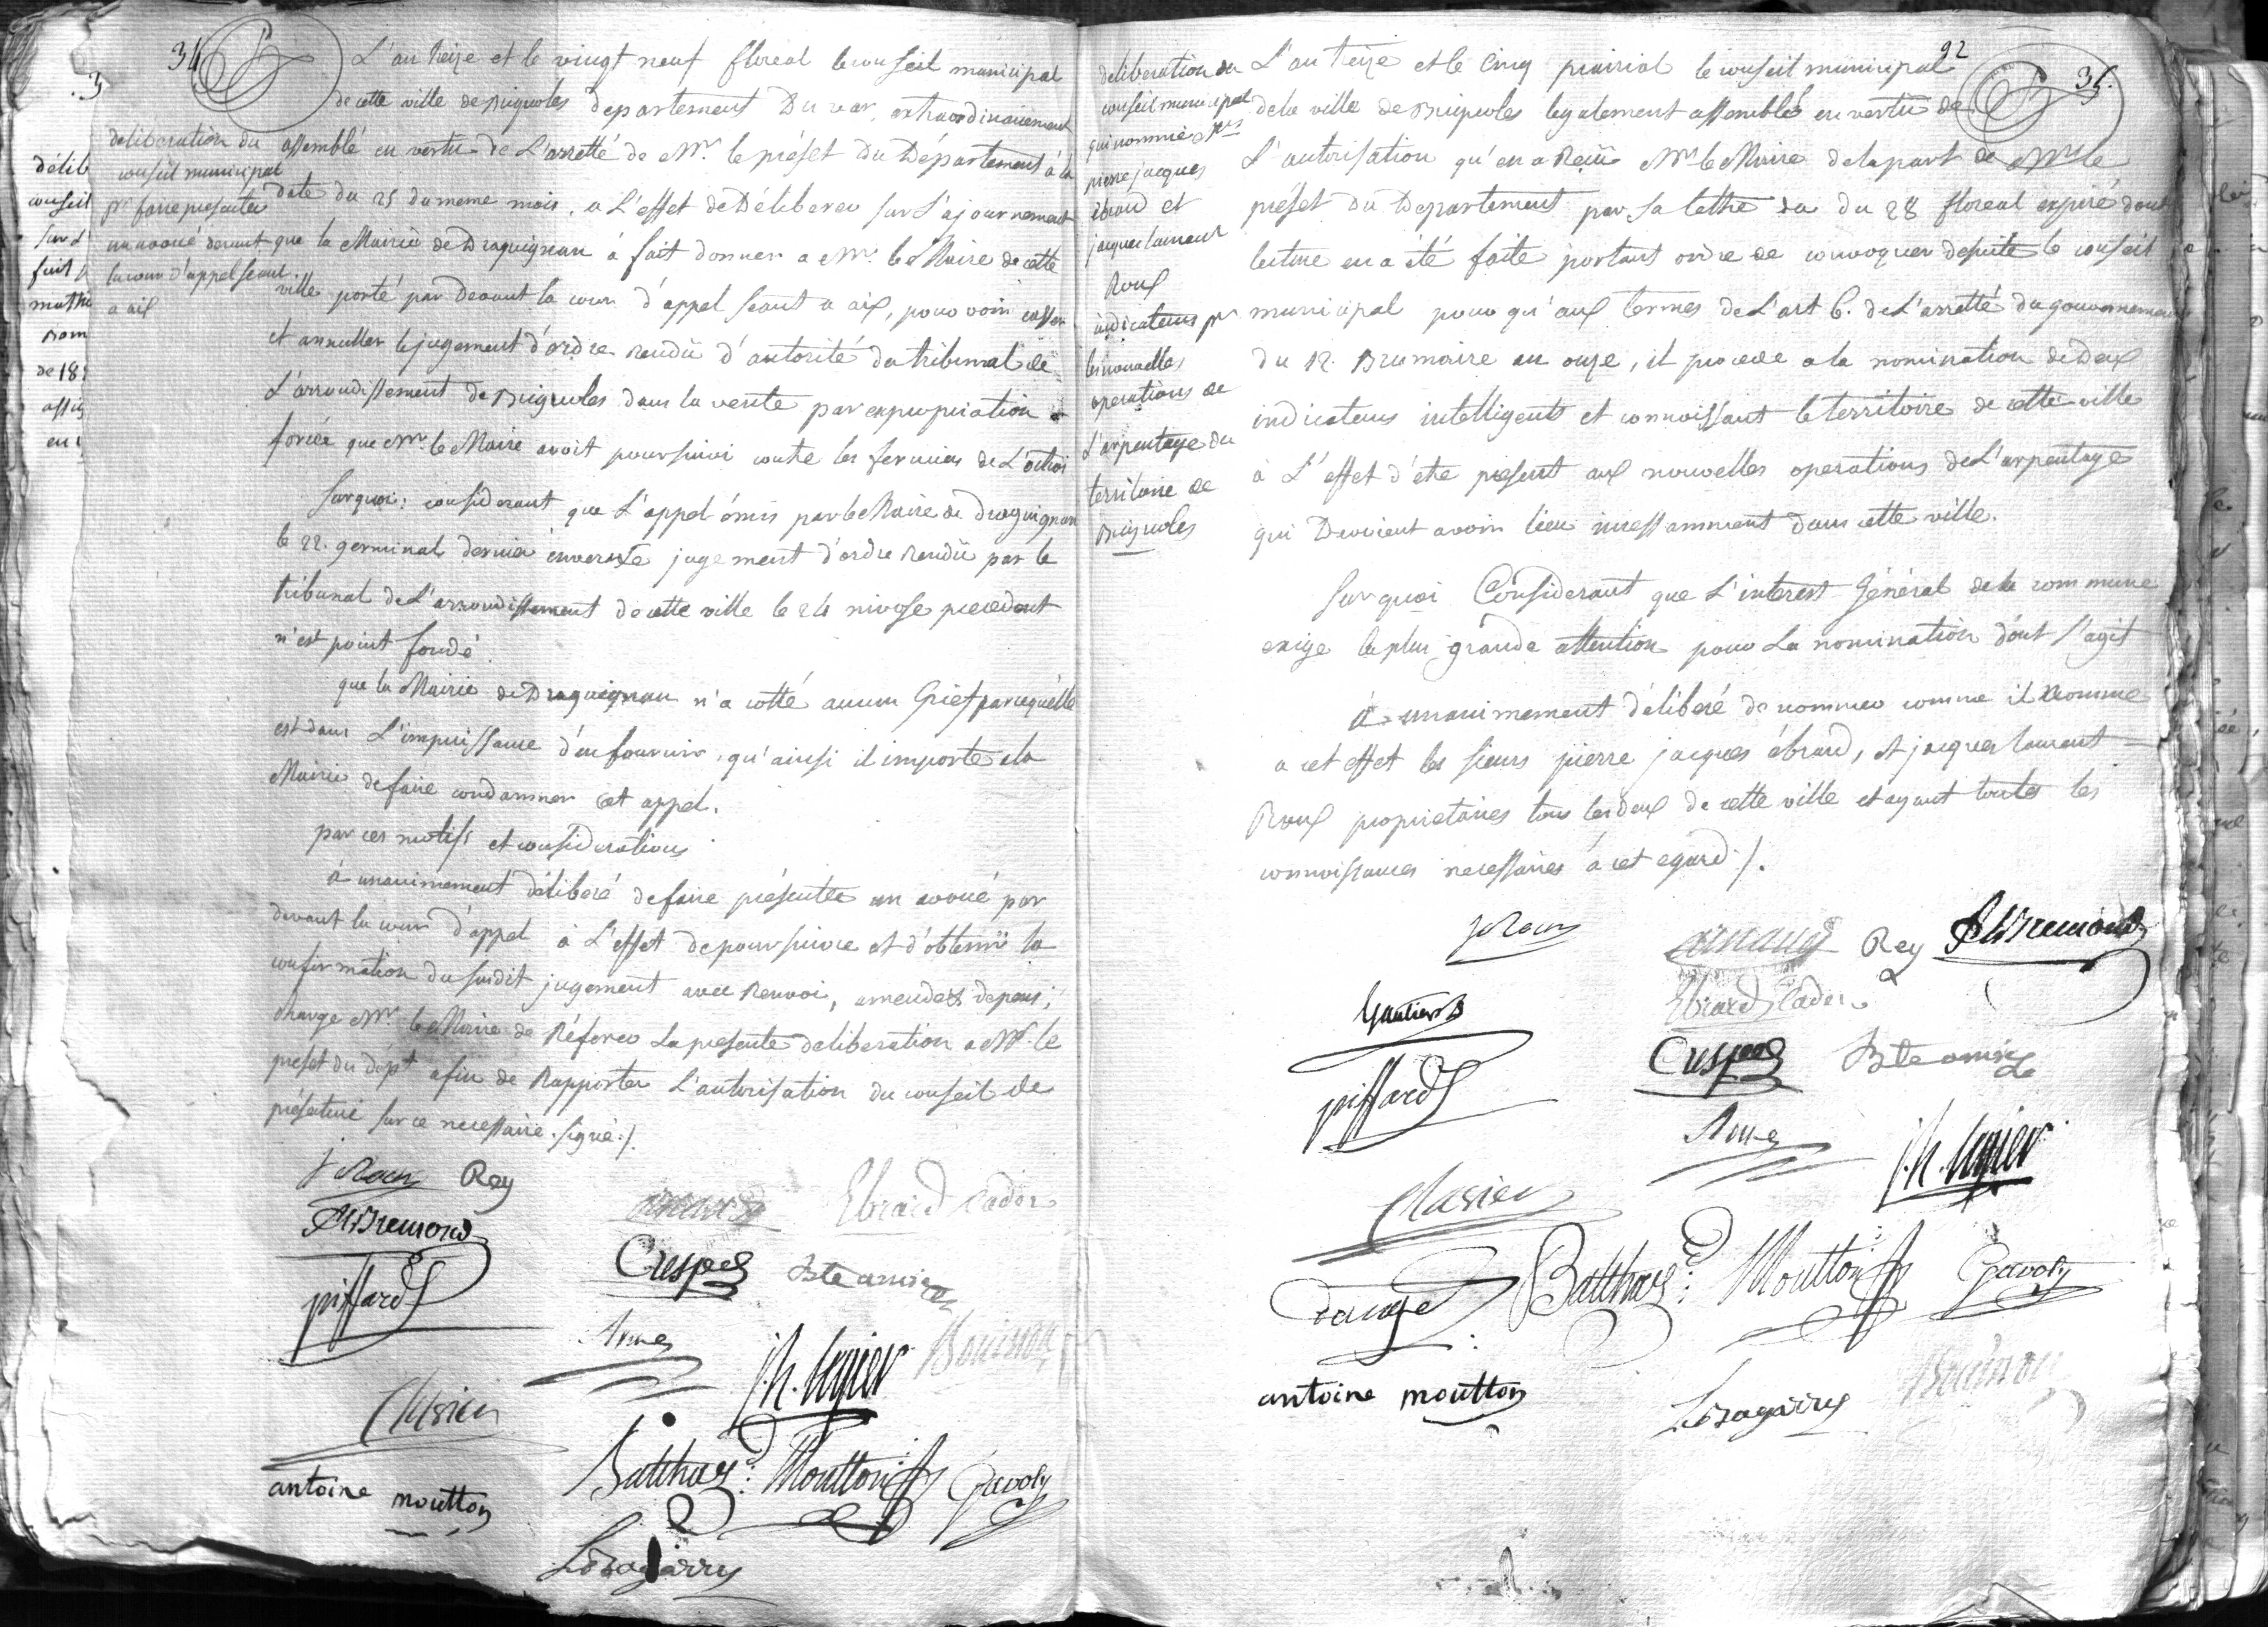 34
L'an treize et le vingt neuf floreal le conseil municipal
de cette ville de Brignoles departement Du var, extraordinairement
assemblé en vertu de L'arretté de Mr. le préfet Du Département à la
date du 25 du meme mois, a L'effet de Déliberer sur L'ajournement
que la Mairie de Draguignan à fait donner a Mr. le Maire de cette
ville porté par Devant la cour d'appel séant a aix, pour voir casser
et annuller le jugement d'ordre rendü d'autorité du tribunal de
L'arrondissement de Brignoles dans la vente par expropriation
forcée que Mr. le Maire avoit poursuivi contre les fermiers de L'octroi
Surquoi: considerant que L'appel émis par le Maire de Draguignan
le 22. germinal dernier envers le jugement d'ordre rendü par le
tribunal de L'arrondissement de cette ville le 24 nivose precedent
n'est point fondé.
que la Mairie de Draguignan n'a cotté aucun Grief parcequ'elle
est dans L'impuissance d'en fournir, qu'ainsi il importe a la
Mairie de faire condamner cet appel.
par ces motifs et considerations
à unanimement déliberé de faire présenter un avoué par
devant la cour d'appel à L'effet de poursuivre et d'obtenir la
confirmation du susdit jugement avec renvoi, amende & depens;
charge Mr. le Maire de Réferer La presente deliberation a Mr. le
prefet du dépt. afin de Rapporter L'autorisation du conseil de
préfecture sur ce necessaire. signé ./.
deliberation du
conseil municipal
pr. faire presenter
un avoué devant
la cour d'appel seant
a aix
délib
conseil
sur L
fait
de 18
en
J Roux Rey
Ebrard Cadet
piffard
Crespel
Bte amic
J.h. Legier
antoine moutton
Balthard: Moutton
Gavoty
92
35.
deliberation du
conseil municipal
qui nomme Mrs
pierre jacques
ébrard et
jacques laurent
Roux
indicateurs pr
les nouvelles
operations de
L'arpentage du
territoire de
Brignoles
L'an treize et le Cinq prairial le conseil municipal
de la ville de Brignoles legalement assemblé en vertu de
L'autorisation qu'en a Reçüe Mr. le Maire de la part de Mr. le
préfet Du Departement par sa lettre du 28 floreal expiré dont
lecture en a été faite portant ordre de convoquer de suite le conseil
municipal pour qu'aux termes de L'art 6. de L'arretté du gouvernement
du 12. Brumaire an onze, il procede a la nomination de Deux
indicateurs intelligents et connoissant le territoire de cette ville
à L'effet d'étre présent aux nouvelles operations de L'arpentage
qui Devoient avoir lieu incessamment dans cette ville.
Sur quoi Considerant que L'interest Général de la commune
exige la plus grande attention pour La nomination dont s'agit
à unanimement déliberé de nommer comme il Nomme
a cet effet les sieurs pierre jacques ébrard, et jacques laurent
Roux proprietaires tous les deux de cette ville et ayant toutes les
connoissances necessaires à cet egard ./.
J Roux
Rey
Gautier
Ebrard Cadet
piffard
Crespel
Bte amic
J.h. Legier
Balthard: Moutton
Gavoty
antoine moutton